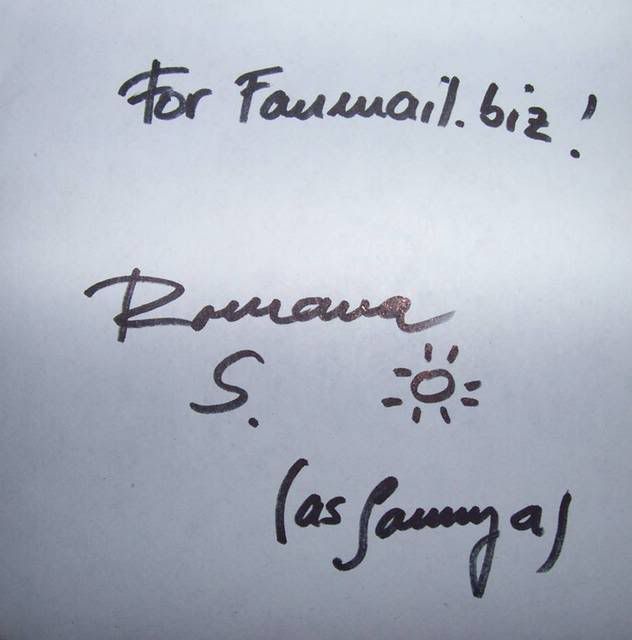 For Fanmail.biz!
Romana
S.
(as